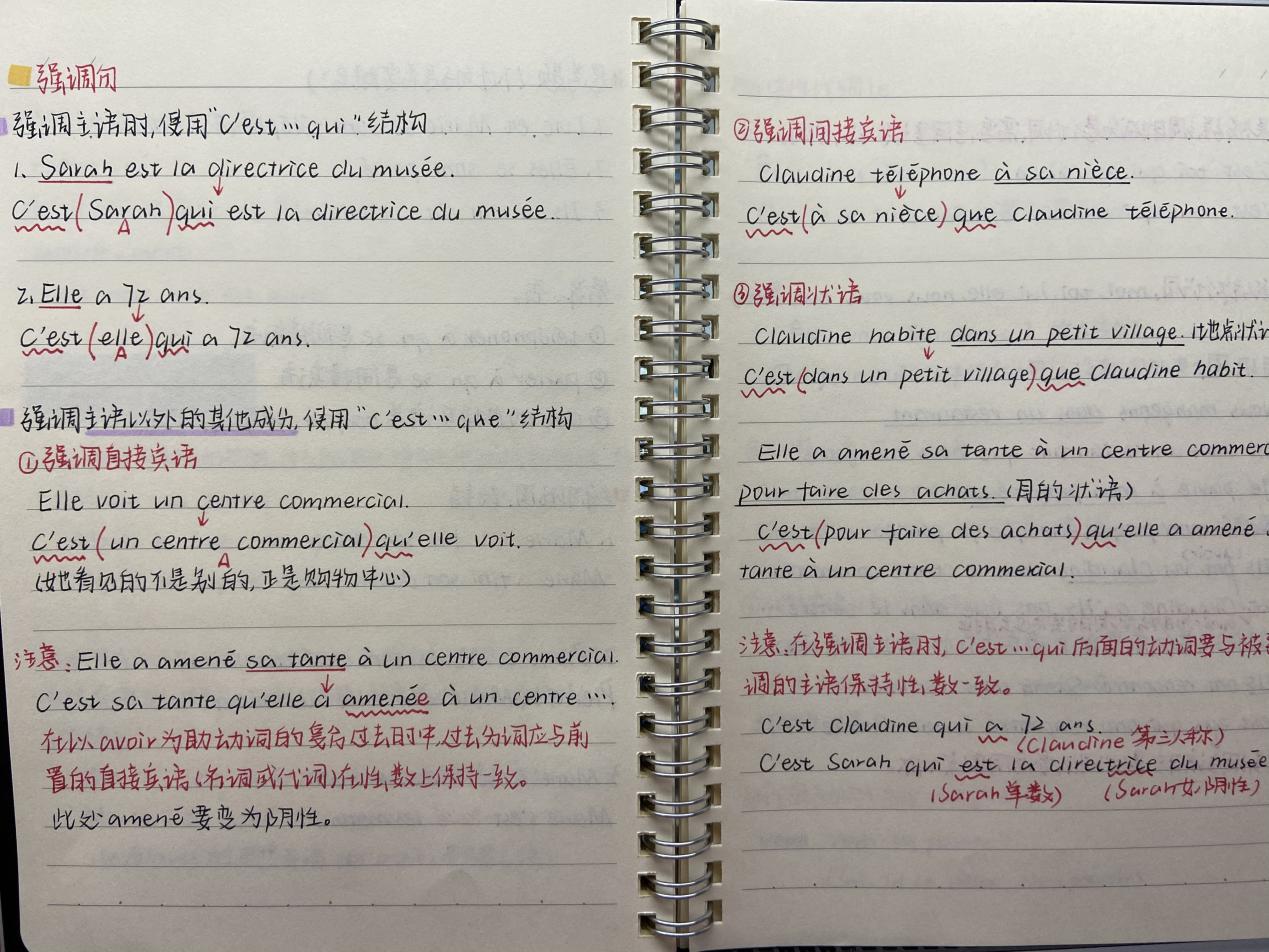 强调句
强调主语时,使用"C'est…qui"结构
1. Sarah est la directrice du musée.
C'est (Sarah) qui est la directrice du musée.
2. Elle a 72 ans.
C'est (elle) qui a 72 ans.
强调主语以外的其他成分,使用"C'est…que"结构
①强调直接宾语
Elle voit un centre commercial.
C'est (un centre commercial) qu'elle voit.
(她看见的不是别的,正是购物中心)
注意: Elle a amené sa tante à un centre commercial.
C'est sa tante qu'elle a amenée à un centre ….
在以avoir为助动词的复合过去时中,过去分词应与前
置的直接宾语(名词或代词)在性,数上保持一致。
此处amené要变为阴性。
②强调间接宾语
Claudine téléphone à sa nièce.
C'est (à sa nièce) que Claudine téléphone.
③强调状语
Claudine habite dans un petit village. (地点状
C'est (dans un petit village) que Claudine habit.
Elle a amené sa tante à un centre commerc
pour faire des achats. (目的状语)
C'est (pour faire des achats) qu'elle a amené
tante à un centre commercial.
注意:在强调主语时, C'est…qui后面的动词要与被
调的主语保持性,数一致。
C'est Claudine qui a 72 ans.
(Claudine 第三人称)
C'est Sarah qui est la directrice du musée
(Sarah单数) (Sarah女,阴性)